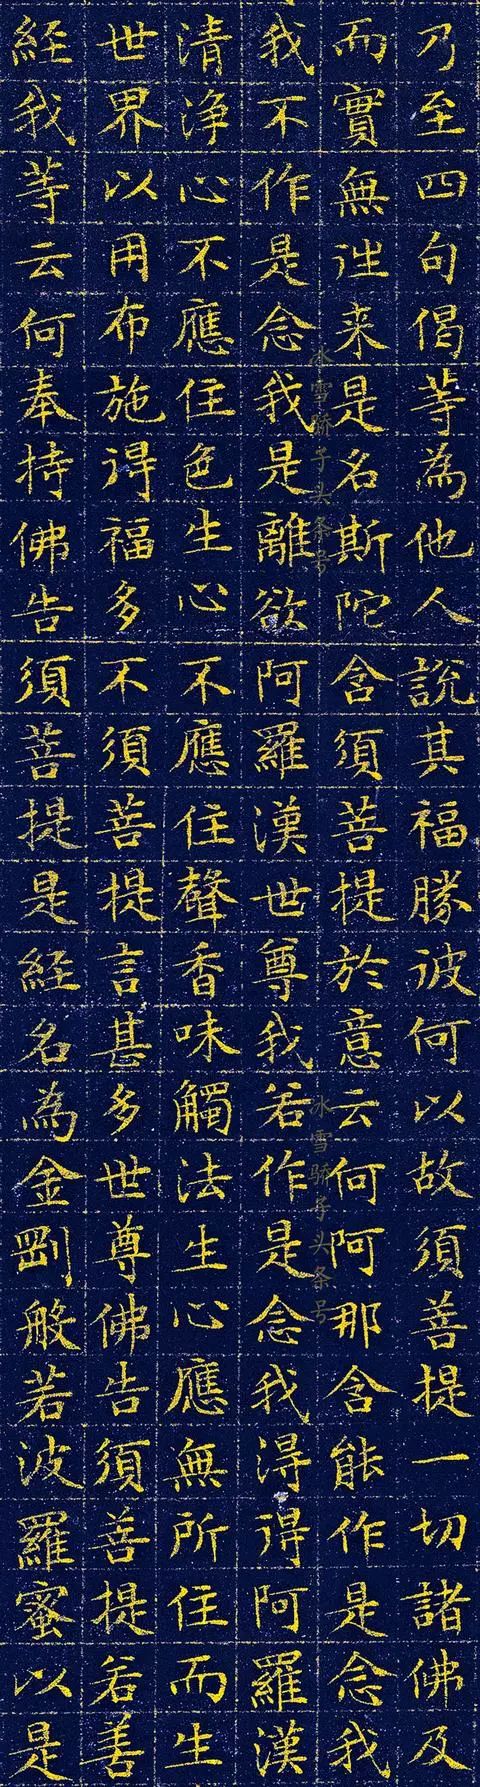 乃至四句偈等為他人說其福勝彼何以故須善提一切諸佛及
而實無往来是名斯陀含須菩提於意云何阿那含能作是念我
我不作是念我是離欲阿羅漢世尊我若作是念我淂得阿羅漢
清淨心不應住色生心不應住聲香味觸法生心應無所住而生
世界以用布施得福多不須菩提言甚多世尊佛告須善提若善
經我等云何奉持佛告須菩提是經名為金剛般若波羅蜜以是
冰雪骄子头条号
冰雪骄子头条号